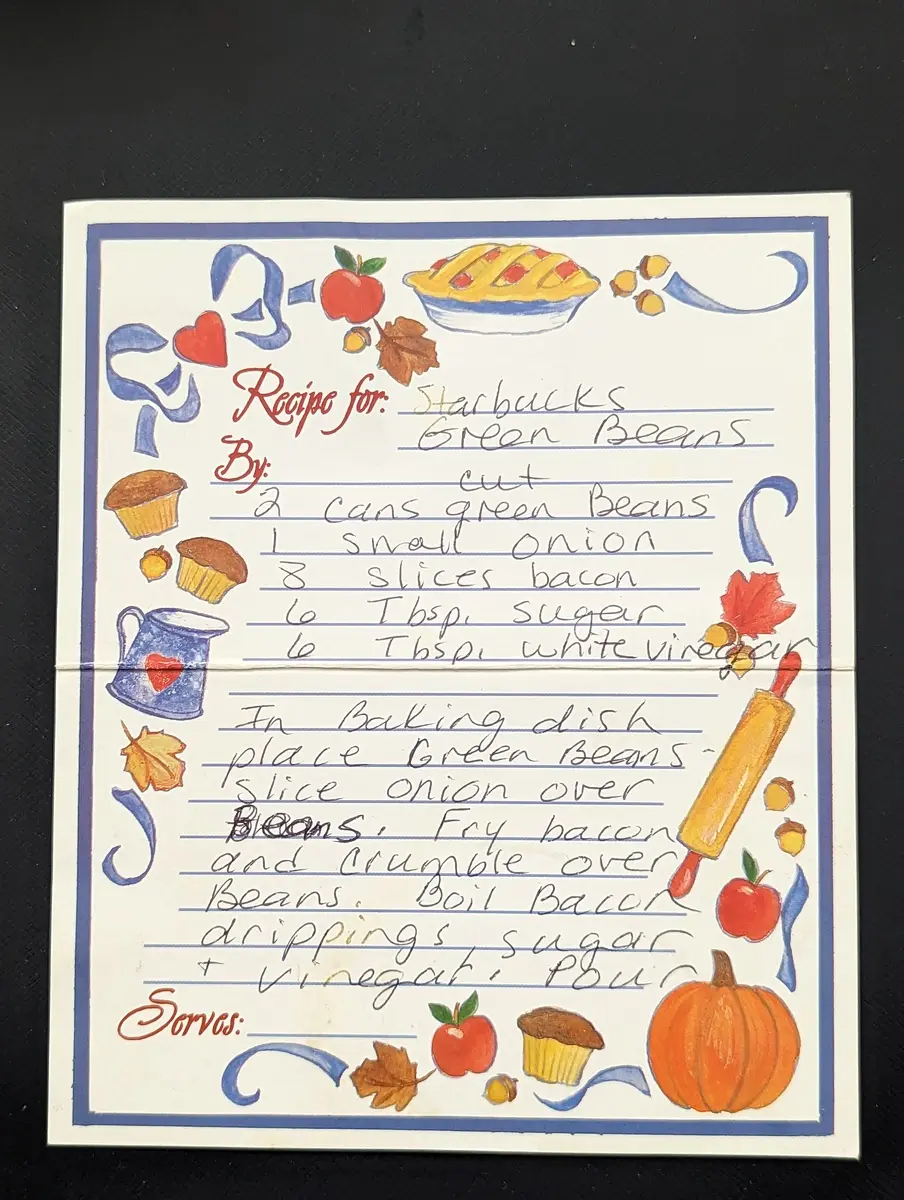 Recipe for: Starbucks
Green Beans
By:
cut
2 cans green Beans
1 small onion
8 slices bacon
6 Tbsp. sugar
6 Tbsp. white vinegar
In Baking dish
place Green Beans-
slice onion over
Beans. Fry bacon
and crumble over
Beans. Boil Bacon
drippings, sugar
+ vinegar. Pour
Serves: